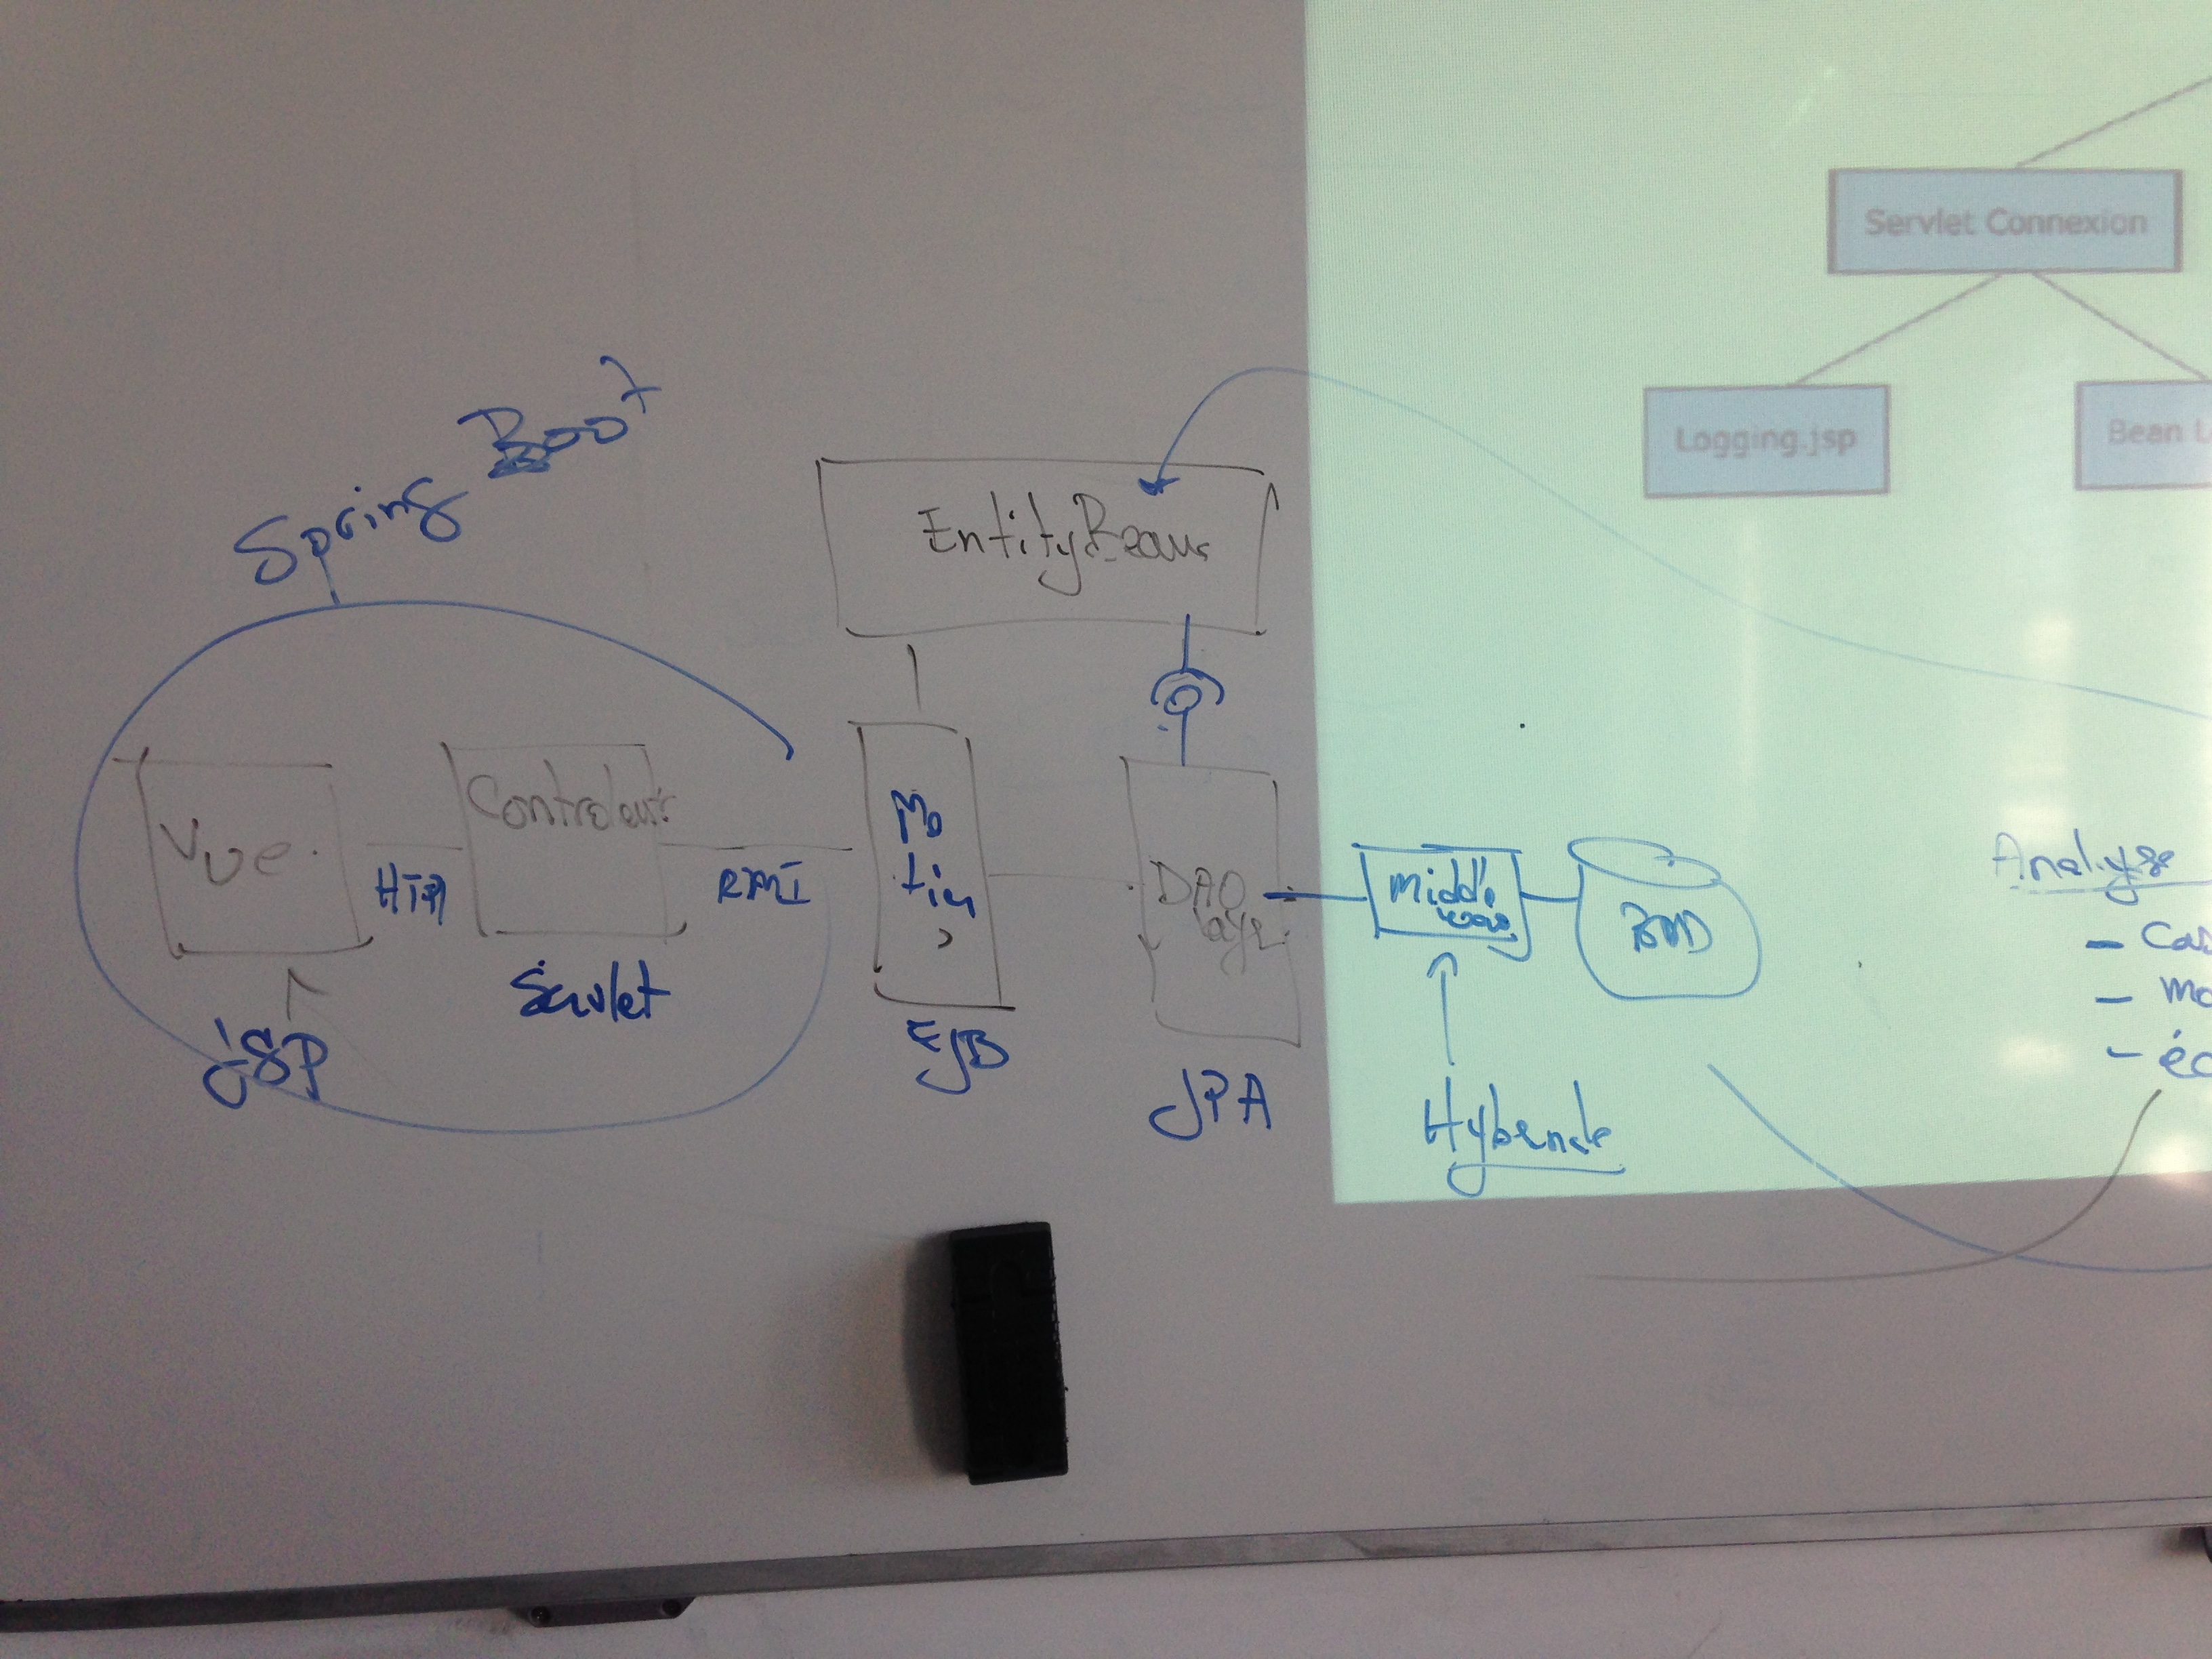 Servlet Connexion
Logging.jsp
Bean L
Spring Boot
EntityBeans
Vue
HTTP
Controleur
RMI
Mé
tier
DAO
layer
Middle
ware
BDD
JSP
Servlet
EJB
JPA
Hybernate
Analyse
- Cas
- mo
- éc